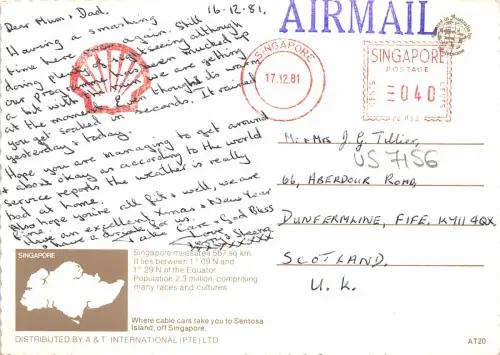 16-12.81,
Dear Mum & Dad,
Having a smashing
time here once again. Still
doing plenty of although
our programme has been mucked up
a bit with the rain we are getting
at the moment. Even thought to
you get soaked in seconds. It rained
yesterday & today.
Hope you are managing to get around
& about okay as according to the world
service reports the weather is really
bad at home.
Also hope you're all fit & well, we are
fine. Have an excellent Xmas & New Year
& have a drink for us.
Take Care & God Bless
Love
xxxxxxxxx
AIRMAIL
SINGAPORE
17.12.81
SINGAPORE
POSTAGE
CENTS 040 CENTS
Mr & Mrs J G Tillier,
US 7156
66, ABERDOUR ROAD,
DUNFERMLINE, FIFE. KY11 4QX
SCOTLAND.
U.K.
SINGAPORE
Singapore measures 587 sq km.
It lies between 1° 09'N and
1° 29'N of the Equator.
Population 2.3 million, comprising
many races and cultures.
Where cable cars take you to Sentosa
Island, off Singapore.
DISTRIBUTED BY A & T INTERNATIONAL (PTE) LTD
AT20